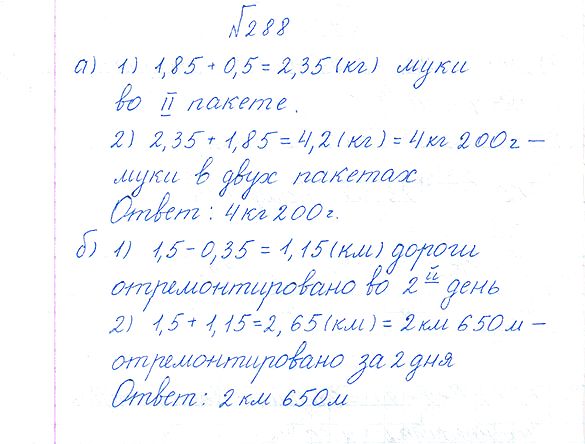 №288
а) 1) 1,85 + 0,5 = 2,35 (кг) муки
во II пакете.
2) 2,35 + 1,85 = 4,2 (кг) = 4кг 200г –
муки в двух пакетах
Ответ: 4кг 200г.
б) 1) 1,5 - 0,35 = 1,15 (км) дороги
отремонтировано во 2й день
2) 1,5 + 1,15 = 2,65 (км) = 2км 650м –
отремонтировано за 2 дня
Ответ: 2км 650м